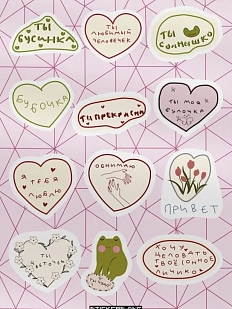 ТЫ
БУСИНКА
ТЫ
ЛЮБИМЫЙ
ЧЕЛОВЕЧЕК
ТЫ
СОЛНЫШКО
БУБОЧКА
ТЫ ПРЕКРАСНА
ТЫ МОЯ
БУЛОЧКА
Я ТЕБЯ
ЛЮБЛЮ
ОБНИМАЮ
ПРИВЕТ
ТЫ
ЦВЕТОЧЕК
ХОЧУ
ЦЕЛОВАТЬ
ТВОЁ СОННОЕ
ЛИЧИКО